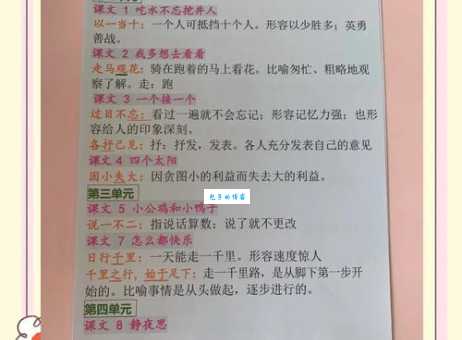 课文 1 吃水不忘挖井人
以一当十：一个人可抵挡十个人。形容以少胜多；英勇
善战。
课文 2 我多想去看看
走马观花：骑在跑着的马上看花。比喻匆忙、粗略地观
察了解。走：跑
课文 3 一个接一个
过目不忘：看过一遍就不会忘记；形容记忆力强；也形
容给人的印象深刻。
各抒己见：抒：抒发，发表。各人充分发表自己的意见
课文 4 四个太阳
因小失大：因贪图小的利益而失去大的利益。
第三单元
课文 5 小公鸡和小鸭子
说一不二：指说话算数；说了就不更改
课文 7 怎么都快乐
日行千里：一天能走一千里。形容速度惊人
千里之行，始于足下：走一千里路，是从脚下第一步开
始的。比喻事情是从头做起，逐步进行的。
第四单元
课文 8 静夜思